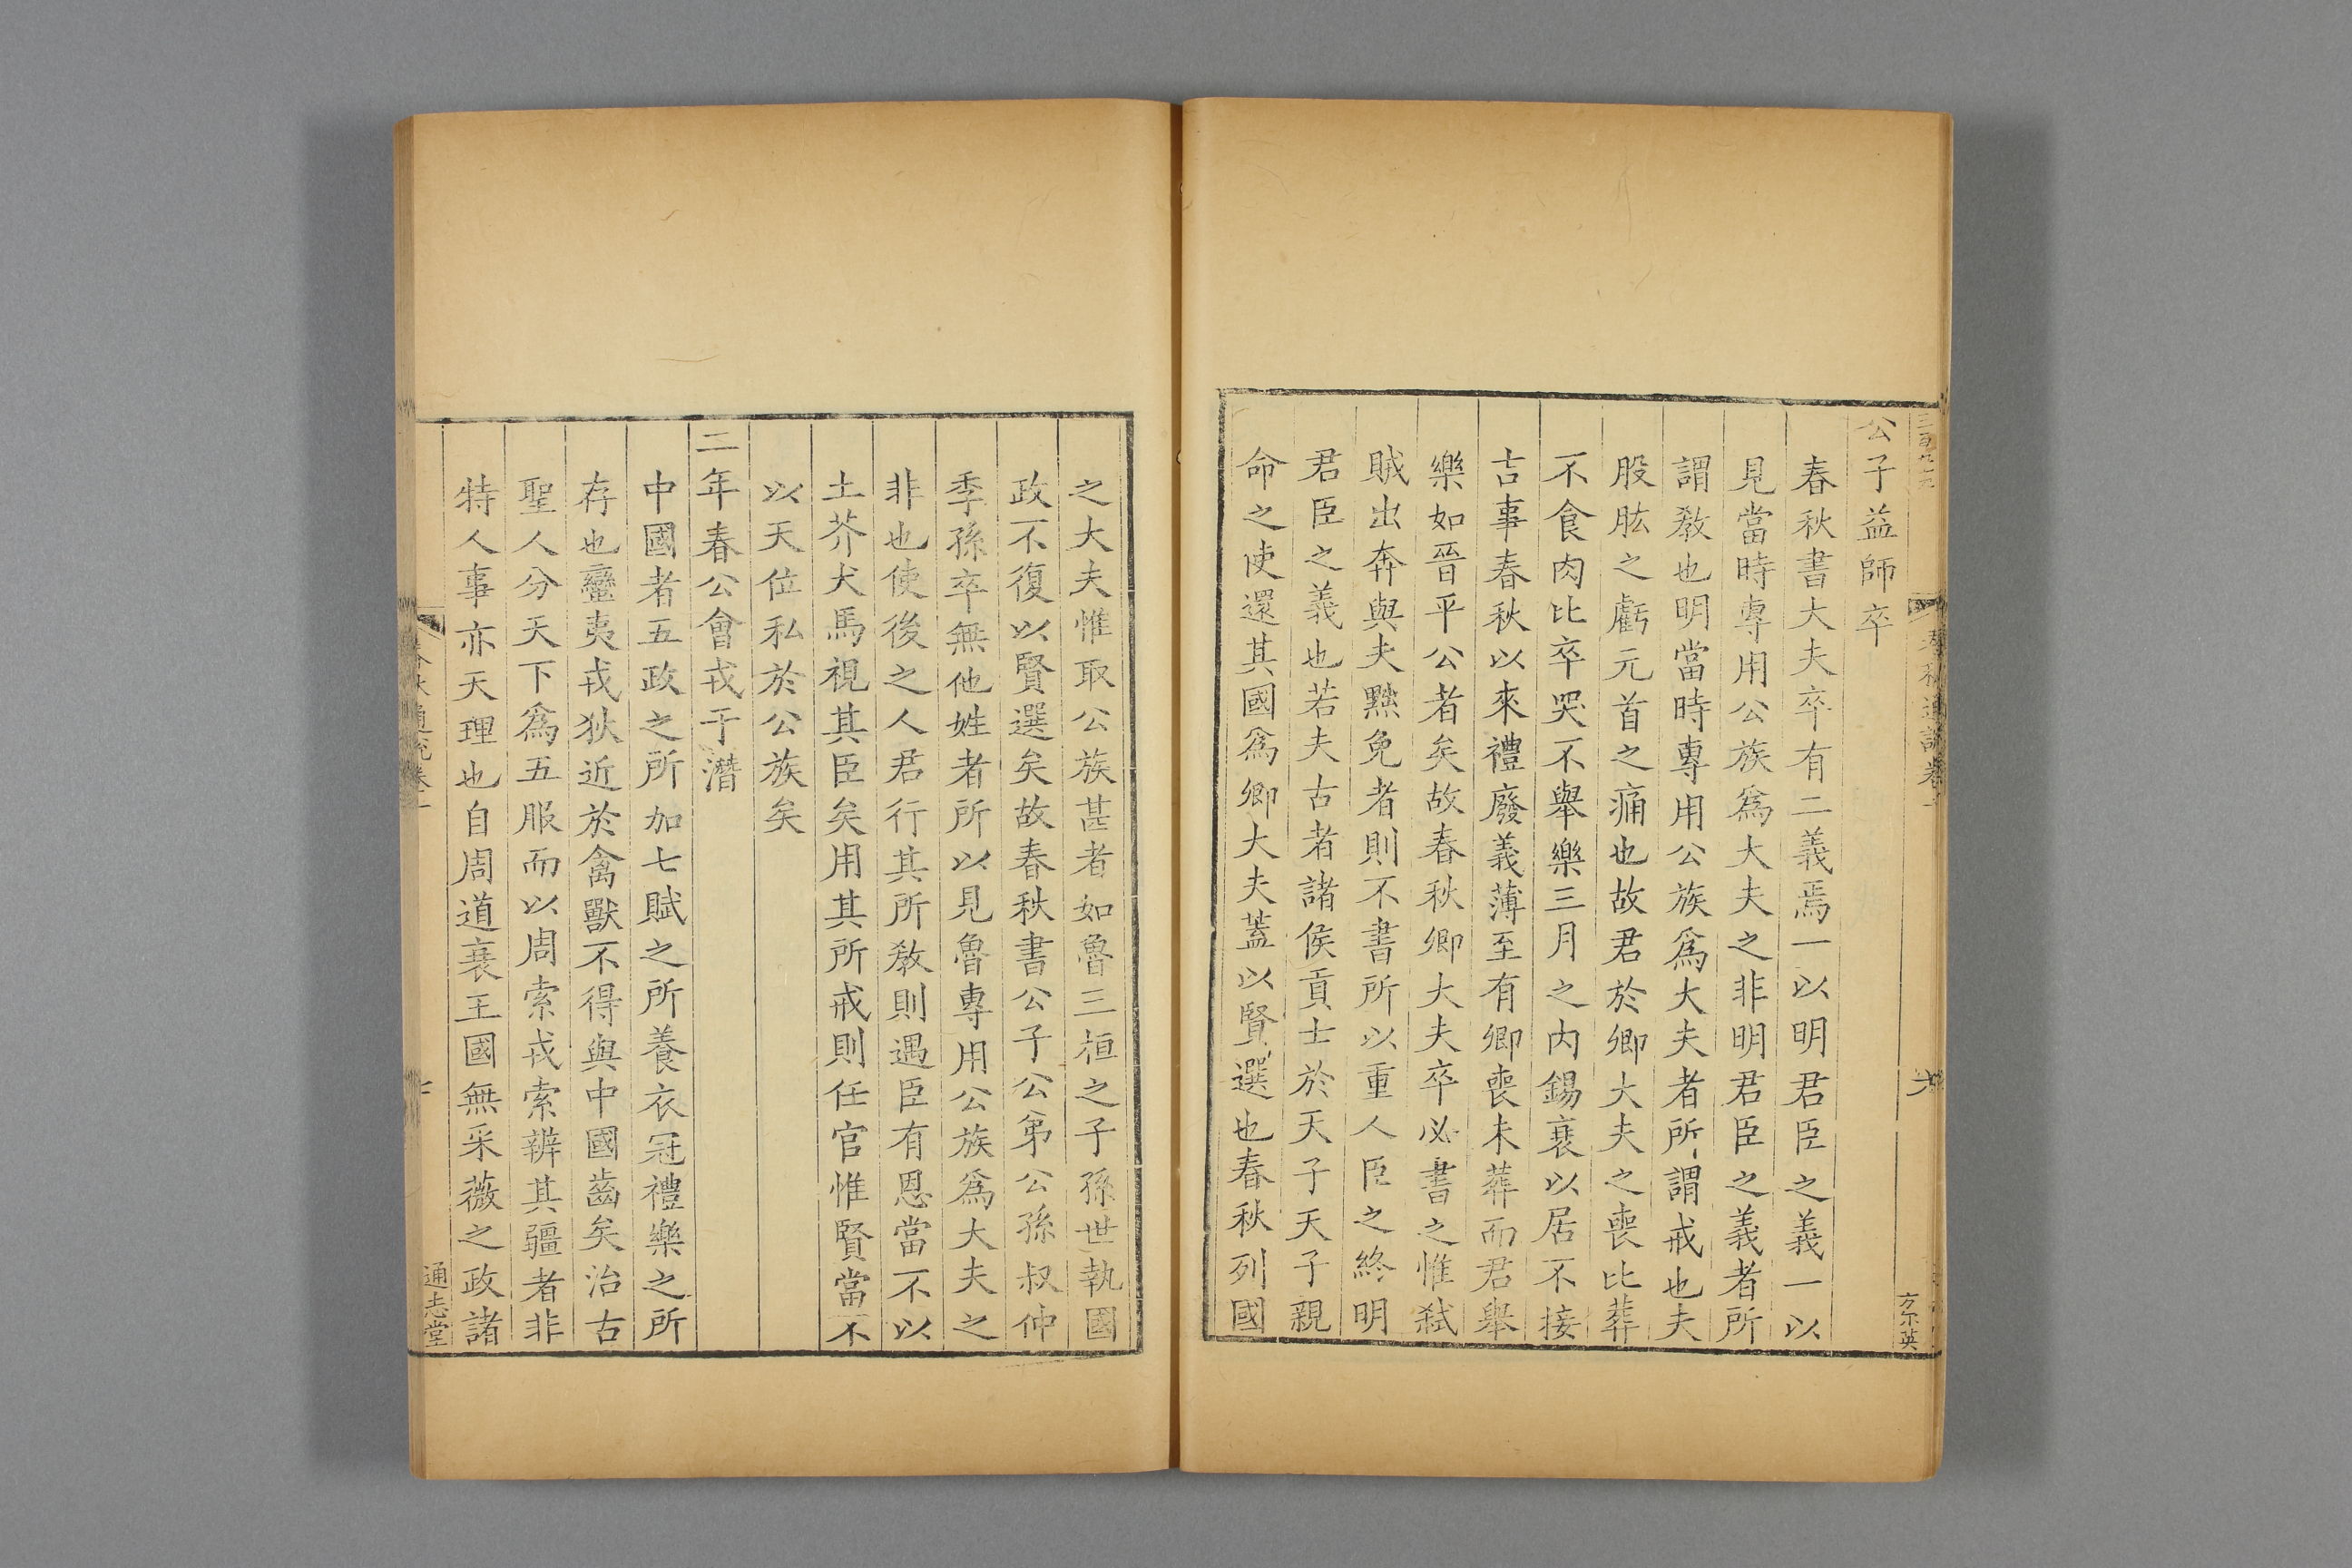 公子益師卒
春秋書大夫卒有二義焉一以明君臣之義一以
見當時專用公族爲大夫之非明君臣之義者所
謂敎也明當時專用公族爲大夫者所謂戒也夫
股肱之虧元首之痛也故君於卿大夫之喪比葬
不食肉比卒哭不舉樂三月之內錫衰以居不接
吉事春秋以來禮廢義薄至有卿喪未葬而君舉
樂如晉平公者矣故春秋卿大夫卒必書之惟弑
賊出奔與夫黜免者則不書所以重人臣之終明
君臣之義也若夫古者諸侯貢士於天子天子親
命之使還其國爲卿大夫蓋以賢選也春秋列國
之大夫惟取公族甚者如魯三桓之子孫世執國
政不復以賢選矣故春秋書公子公弟公孫叔仲
季孫卒無他姓者所以見魯專用公族爲大夫之
非也使後之人君行其所敎則遇臣有恩當不以
土芥犬馬視其臣矣用其所戒則任官惟賢當不
以天位私於公族矣
二年春公會戎于潛
中國者五政之所加七賦之所養衣冠禮樂之所
存也蠻夷戎狄近於禽獸不得與中國齒矣治古
聖人分天下爲五服而以周索戎索辨其疆者非
特人事亦天理也自周道衰王國無采薇之政諸
通志堂